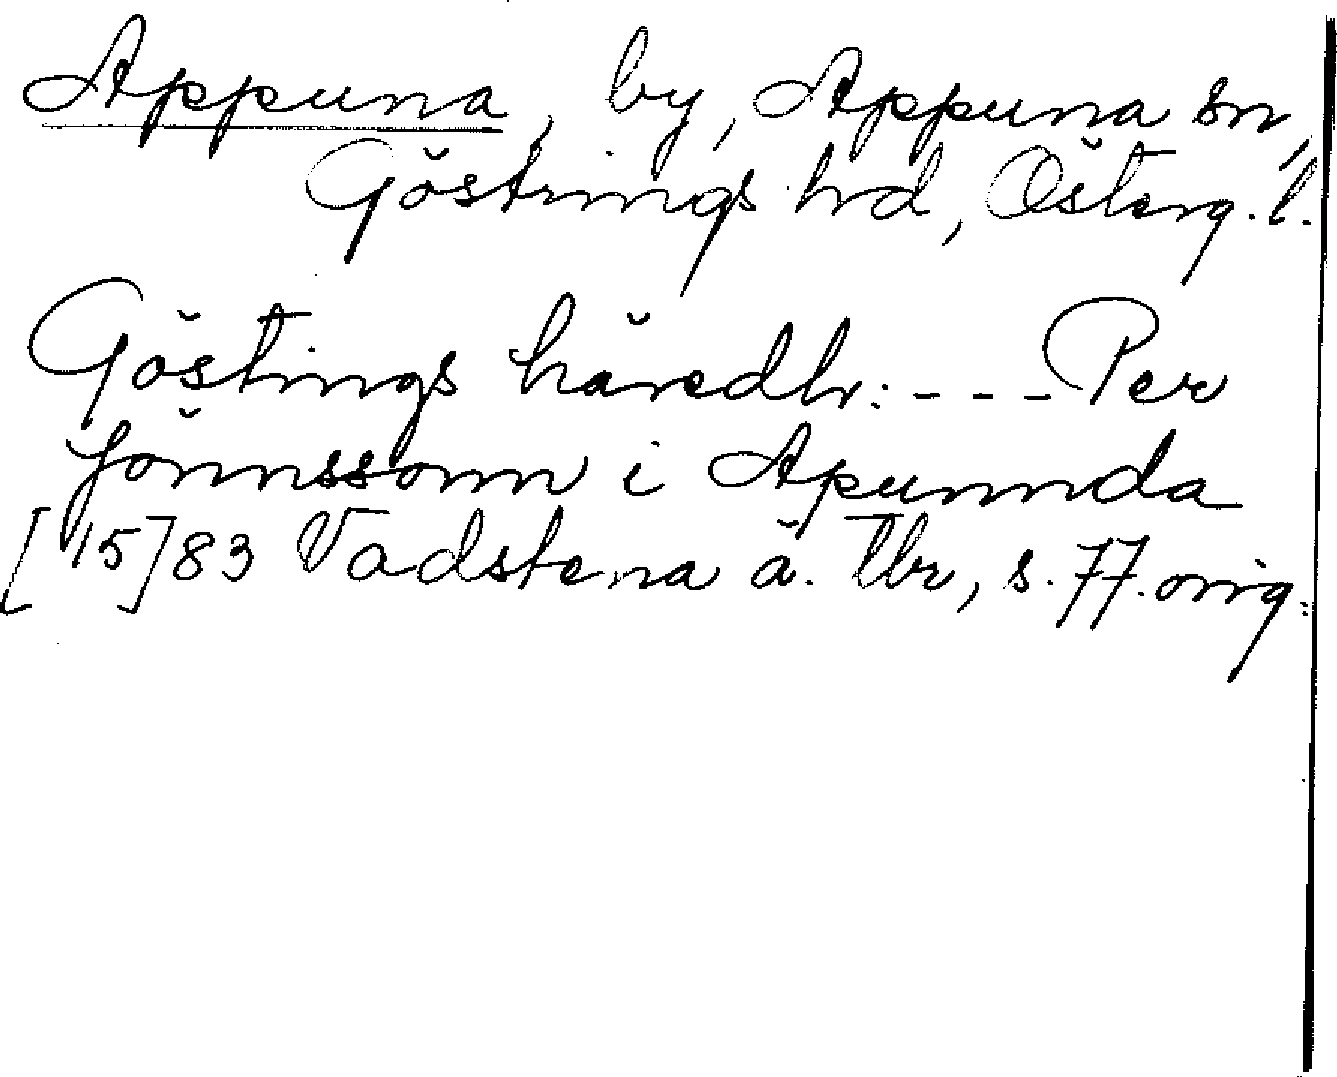 Appuna, by, Appuna sn,
Göstrings hrd, Österg. l.
Göstings häredhr: - - - Per
Jönnssonn i Apunnda
[15]83 Vadstena ä. Tbr, s. 77. orig.